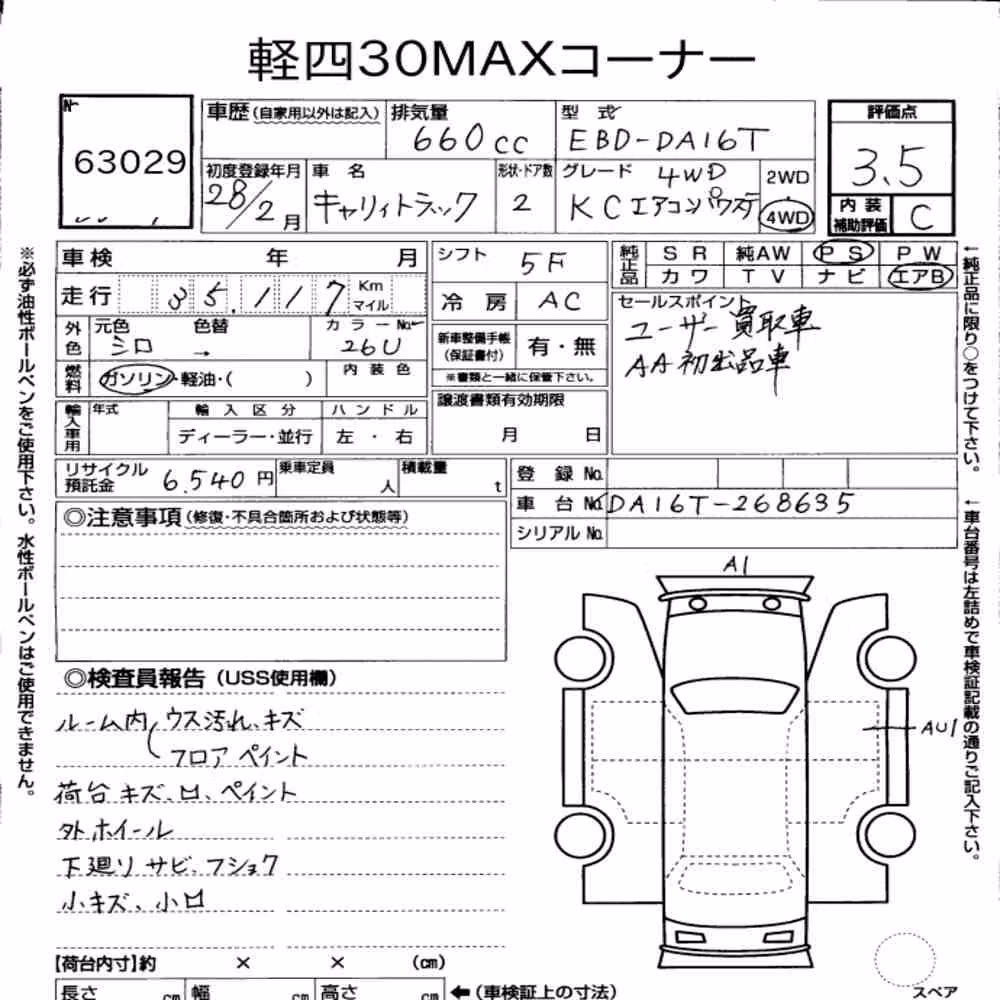 軽四30MAXコーナー
№
63029
車歴(自家用以外は記入) 排気量 660cc 型式 EBD-DA16T
初度登録年月 28/2月 車名 キャリィトラック 形状・ドア数 2 グレード 4WD KCエアコンパワステ 2WD 4WD
評価点
3.5
内装補助評価 C
車検 年 月
走行 35,117 Km マイル
外色 元色 シロ 色替 → カラーNo. 26U
燃料 ガソリン・軽油・( ) 内装色
輸入車用 年式 輸入区分 ハンドル
ディーラー・並行 左・右
シフト 5F
冷房 AC
新車整備手帳(保証書付) 有・無
※書類と一緒に保管下さい。
譲渡書類有効期限
月 日
純正品 SR 純AW PS PW
カワ TV ナビ エアB
セールスポイント
ユーザー買取車
AA初出品車
リサイクル預託金 6.540円 乗車定員 人 積載量 t
登録No.
車台No. DA16T-268635
シリアルNo.
◎注意事項(修復・不具合箇所および状態等)
◎検査員報告(USS使用欄)
ルーム内 ウス汚れ、キズ
フロア ペイント
荷台キズ、凹、ペイント
外ホイール
下廻リサビ、フショク
小キズ、小凹
A1
AU1
【荷台内寸】約 × × (cm)
長さ cm 幅 cm 高さ cm ←(車検証上の寸法)
スペア
※必ず油性ボールペンをご使用下さい。水性ボールペンはご使用できません。
←純正品に限り○をつけて下さい。
←車台番号は左詰めで車検証記載の通りご記入下さい。